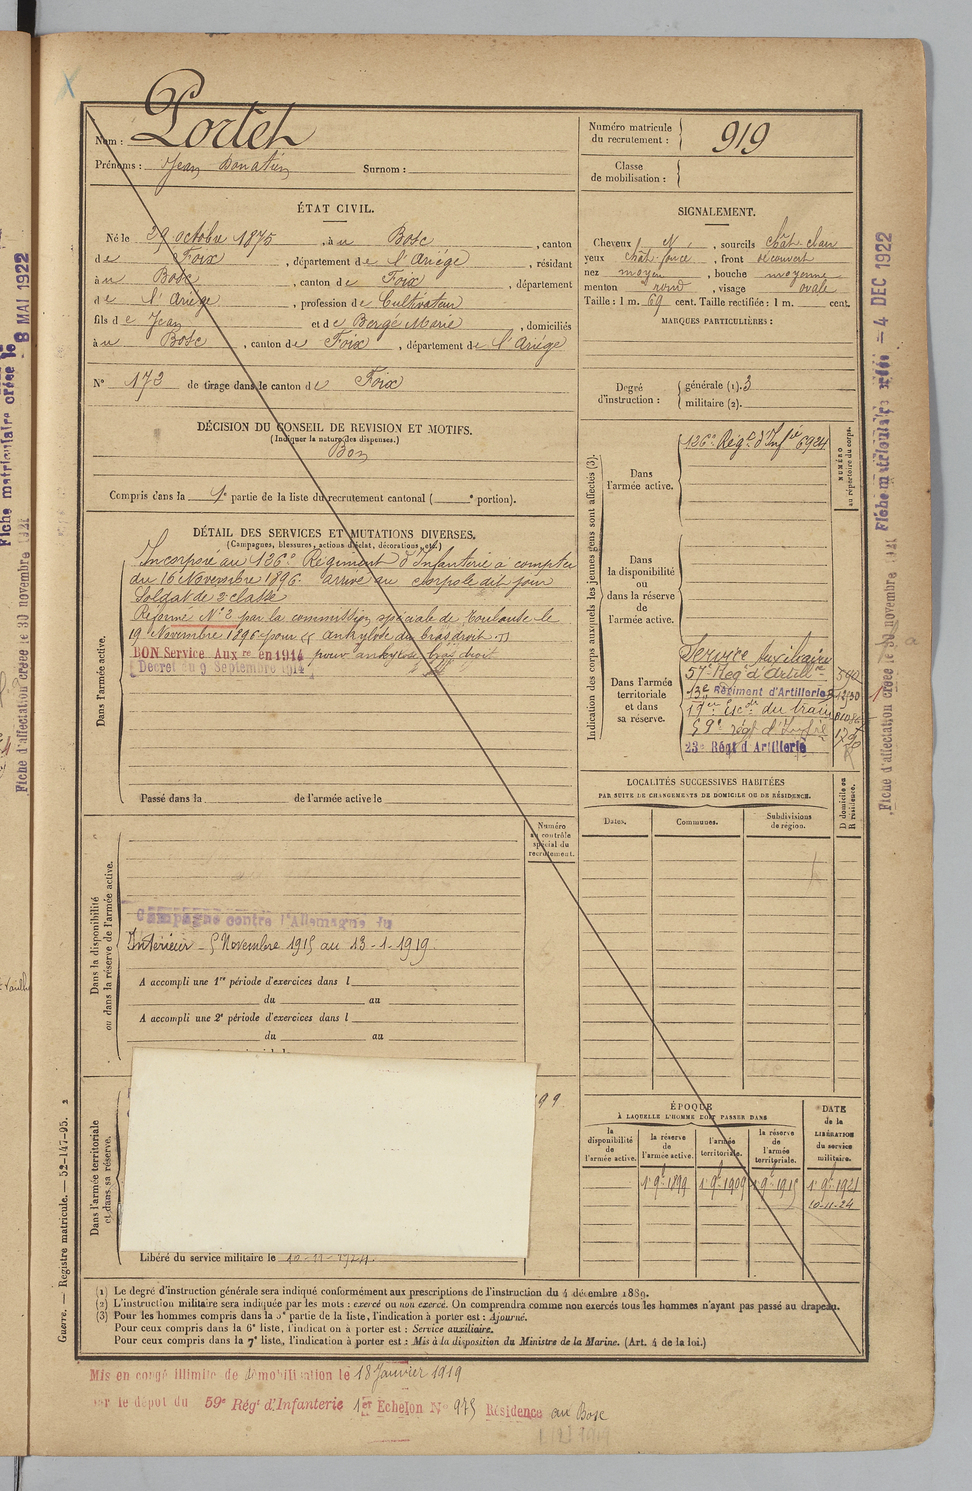 Nom : Portet
Prénoms : Jean Donatien Surnom :
Numéro matricule du recrutement : 919
Classe de mobilisation :
ÉTAT CIVIL.
Né le 29 octobre 1875, à u Bosc, canton
de Foix, département de l'Ariège, résidant
à u Bosc, canton de Foix, département
de l'Ariège, profession de Cultivateur
fils de Jean et de Bergé Marie, domiciliés
à u Bosc, canton de Foix, département de l'Ariège
N° 173 de tirage dans le canton de Foix
SIGNALEMENT.
Cheveux N., sourcils chât-clair
yeux chât foncé, front découvert
nez moyen, bouche moyenne
menton rond, visage ovale
Taille : 1 m. 69 cent. Taille rectifiée : 1 m. cent.
MARQUES PARTICULIÈRES :
Degré d'instruction : générale (1). 3
militaire (2).
DÉCISION DU CONSEIL DE REVISION ET MOTIFS.
(Indiquer la nature des dispenses.)
Bon
Compris dans la 1e partie de la liste du recrutement cantonal ( e portion).
DÉTAIL DES SERVICES ET MUTATIONS DIVERSES.
(Campagnes, blessures, actions d'éclat, décorations, etc.)
Dans l'armée active.
Incorporé au 126e Régiment d'Infanterie à compter
du 16 Novembre 1896. arrivé au corps le dit jour
Soldat de 2e classe
Réformé N° 2 par la commission spéciale de Toulouse le
19 Novembre 1896 pour « ankylose du bras droit »
BON Service Aux re en 1914 pour ankylose bras droit
Décret du 9 Septembre 1914
Passé dans la de l'armée active le
Indication des corps auxquels les jeunes gens sont affectés (3).
NUMÉRO au répertoire du corps.
Dans l'armée active.
126e Rég t d'Inf ie 6924
Dans la disponibilité ou dans la réserve de l'armée active.
Dans l'armée territoriale et dans sa réserve.
Service Auxiliaire
57e Reg t d'Artill ie
13e Régiment d'Artillerie
19e Esc on du train
59e régt d'Inf ie
23e Régt d'Artillerie
LOCALITÉS SUCCESSIVES HABITÉES
PAR SUITE DE CHANGEMENTS DE DOMICILE OU DE RÉSIDENCE.
Dates. Communes. Subdivisions de région.
D domicile ou R résidence.
Numéro au contrôle spécial du recrutement.
Dans la disponibilité ou dans la réserve de l'armée active.
Campagne contre l'Allemagne du
Intérieur - 5 Novembre 1915 au 13-1-1919.
A accompli une 1re période d'exercices dans l
du au
A accompli une 2e période d'exercices dans l
du au
Dans l'armée territoriale et dans sa réserve.
Libéré du service militaire le 10-11-1924.
ÉPOQUE
À LAQUELLE L'HOMME DOIT PASSER DANS
la disponibilité de l'armée active.
la réserve de l'armée active.
l'armée territoriale.
la réserve de l'armée territoriale.
DATE de la LIBÉRATION du service militaire.
1er 9bre 1899 1er 9bre 1909 1er 9bre 1915 1er 9bre 1921
10-11-24
(1) Le degré d'instruction générale sera indiqué conformément aux prescriptions de l'instruction du 4 décembre 1889.
(2) L'instruction militaire sera indiquée par les mots : exercé ou non exercé. On comprendra comme non exercés tous les hommes n'ayant pas passé au drapeau.
(3) Pour les hommes compris dans la 5e partie de la liste, l'indication à porter est : Ajourné.
Pour ceux compris dans la 6e liste, l'indication à porter est : Service auxiliaire.
Pour ceux compris dans la 7e liste, l'indication à porter est : Mis à la disposition du Ministre de la Marine. (Art. 4 de la loi.)
Mis en congé illimité de démobilisation le 18 Janvier 1919
par le dépôt du 59e Rég t d'Infanterie 1er Echelon N° 975 Résidence au Bosc
Guerre. — Registre matricule. — 52-147-95. 2
Fiche matriculaire créée le 8 MAI 1922
Fiche d'affectation créée le 30 novembre 1921
Fiche matriculaire créée — 4 DEC 1922
Fiche d'affectation créée le 30 novembre 1921